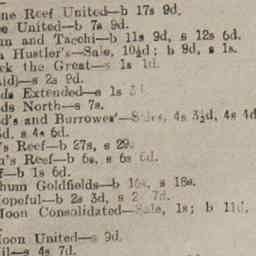 ne Reef United—b 17s 9d.
e United—b 7s 9d.
an and Tacchi—b 11s 9d, s 12s 6d.
a Hustler's—Sale, 10½d; b 9d, s 1s.
ck the Great—s 1s 1d.
aid)—s 2s 9d.
ds Extended—s 1s
ds North—s 7s.
d's and Burrowes'—Sales, 4s 3½d, 4s 4d
d, s 4s 6d.
's Reef—b 27s, s 29
n's Reef—b 6s, s 6s 6d.
f—b 1s 6d.
hum Goldfields—b 16s, s 18s.
opeful—b 2s 3d, s 2 7d.
Moon Consolidated—Sale, 1s; b 11d,
Moon United—s 9d.
il—s 4s 7d.